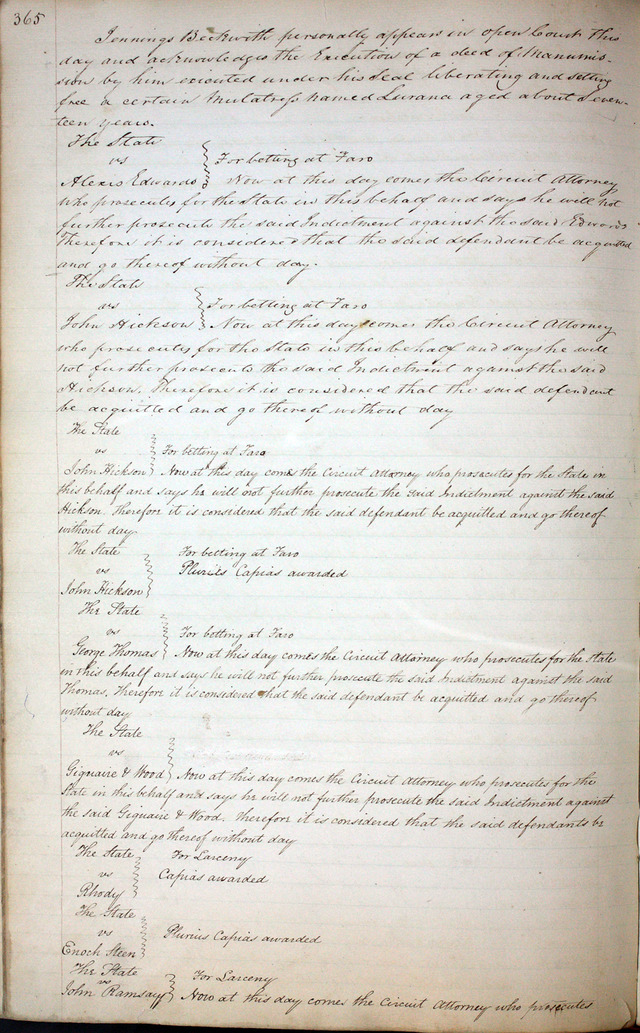 365
Jennings Beckwith personally appears in open Court this
day and acknowledges the Execution of a deed of Manumis-
sion by him executed under his Seal liberating and setting
free a certain Mulatress named Lurana aged about Seven-
teen years.
The State
vs
For betting at Faro
Alexis Edwards Now at this day comes the Circuit Attorney
who prosecutes for the State in this behalf and says he will not
further prosecute the said Indictment against the said Edwards
Therefore it is considered that the said defendant be acquitted
and go thereof without day.
The State
vs
For betting at Faro
John Hickson Now at this day comes the Circuit Attorney
who prosecutes for the State in this behalf and says he will
not further prosecute the said Indictment against the said
Hickson. Therefore it is considered that the said defendant
be acquitted and go thereof without day
The State
vs
For betting at Faro
John Hickson Now at this day comes the Circuit Attorney who prosecutes for the State in
this behalf and says he will not further prosecute the said Indictment against the said
Hickson. Therefore it is considered that the said defendant be acquitted and go thereof
without day.
The State For betting at Faro
vs Pluries Capias awarded
John Hickson
The State
vs For betting at Faro
George Thomas Now at this day comes the Circuit Attorney who prosecutes for the State
in this behalf and says he will not further prosecute the said Indictment against the said
Thomas. Therefore it is considered that the said defendant be acquitted and go thereof
without day
The State
vs
Giguaire & Wood Now at this day comes the Circuit Attorney who prosecutes for the
State in this behalf and says he will not further prosecute the said Indictment against
the said Giguaire & Wood. Therefore it is considered that the said defendants be
acquitted and go thereof without day
The State For Larceny
vs Capias awarded
Rhody
The State
vs Plurius Capias awarded
Enoch Steen
The State For Larceny
vs
John Ramsay Now at this day comes the Circuit Attorney who prosecutes